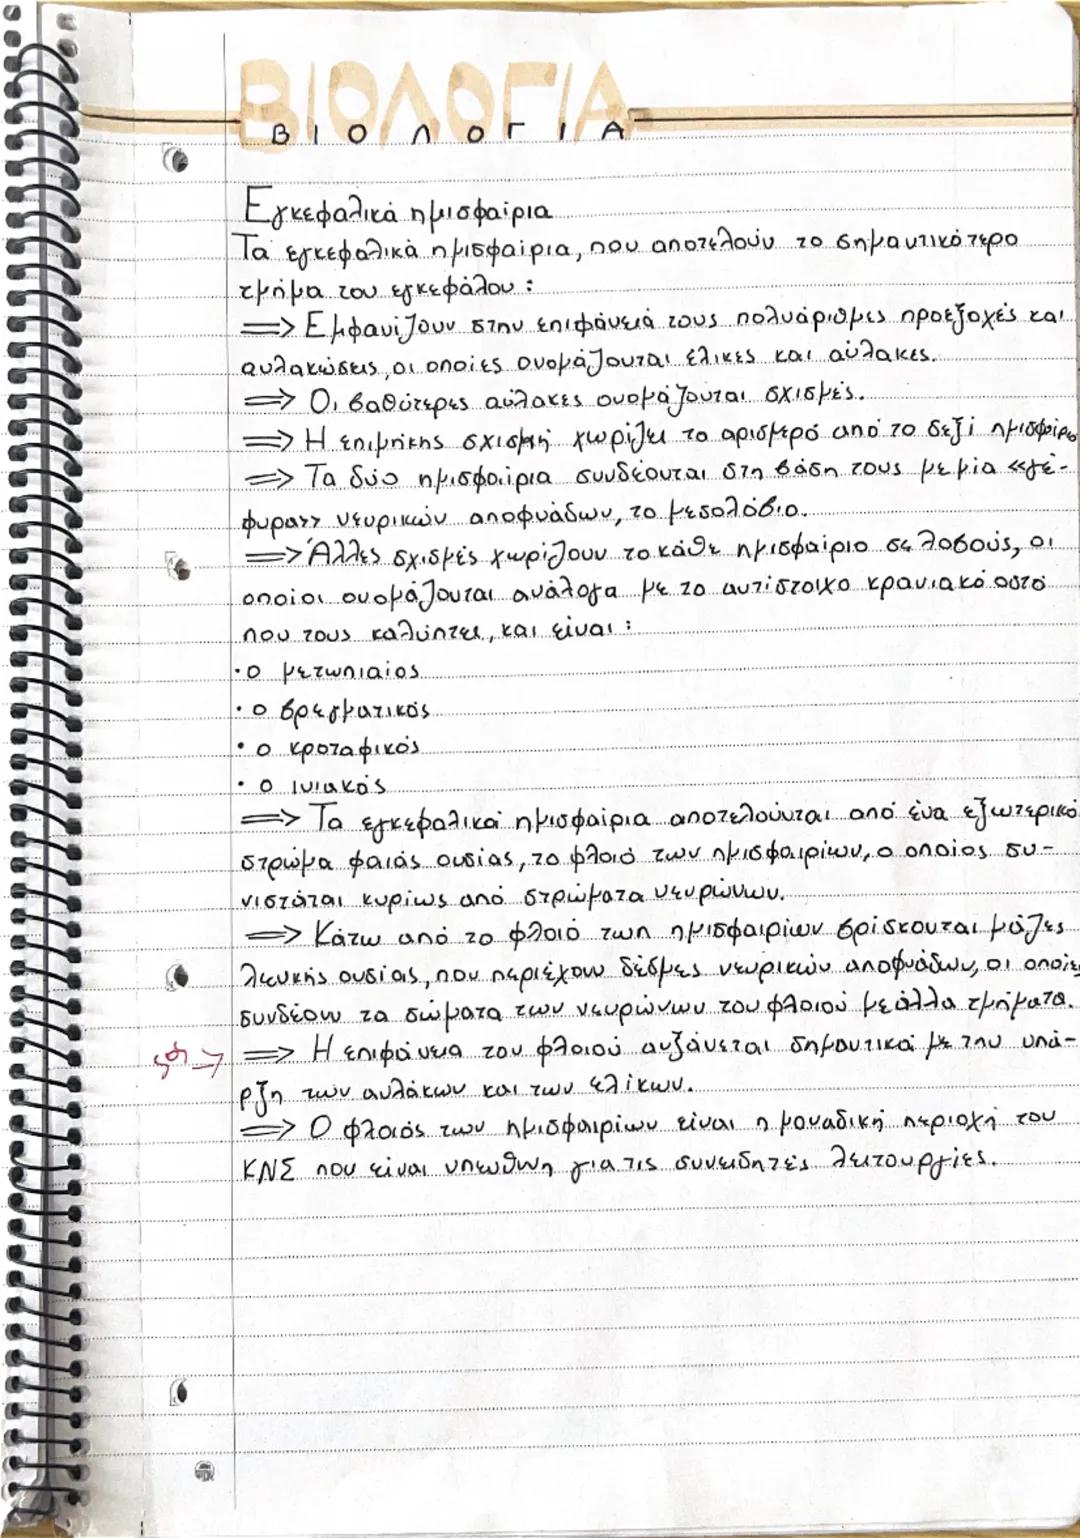 ΒΙΟΛΟΓΙΑ
ΒΙΟΛΟΓΙΑ
Εγκεφαλικά ημισφαίρια
Τα εγκεφαλικά ημισφαίρια, που αποτελούν το σημαντικότερο
τμήμα του εγκεφάλου :
=> Εμφανίζουν στην επιφάνειά τους πολυάριθμες προεξοχές και
αυλακώσεις, οι οποίες ονομάζονται έλικες και αύλακες.
=> Οι βαθύτερες αύλακες ονομάζονται σχισμές.
=> Η επιμήκης σχισμή χωρίζει το αρισμερό από το δεξί ημισφαίριο
=> Τα δύο ημισφαίρια συνδέονται στη βάση τους με μία «γέ-
φυρα» νευρικών αποφυάδων, το μεσολόβιο.
=> Άλλες σχισμές χωρίζουν το κάθε ημισφαίριο σε λοβούς, οι
οποίοι ονομάζονται ανάλογα με το αντίστοιχο κρανιακό οστό
που τους καλύπτει, και είναι :
· ο μετωπιαίος
· ο βρεγματικός
· ο κροταφικός
· ο ινιακός
=> Τα εγκεφαλικά ημισφαίρια αποτελούνται από ένα εξωτερικό
στρώμα φαιάς ουσίας, το φλοιό των ημισφαιρίων, ο οποίος συ-
νιστάται κυρίως από στρώματα νευρώνων.
=> Κάτω από το φλοιό τωπ ημισφαιρίων βρίσκονται μάζες
λευκής ουσίας, που περιέχουν δέσμες νευρικών αποφυάδων, οι οποίες
συνδέουν τα σώματα των νευρώνων του φλοιού με άλλα τμήματα.
=> Η επιφάνεια του φλοιού αυξάνεται σημαντικά με την ύπα-
ρξη των αυλάκων και των ελίκων.
=> Ο φλοιός των ημισφαιρίων είναι η μοναδική περιοχή του
ΚΝΣ που είναι υπεύθυνη για τις συνειδητές λειτουργίες.